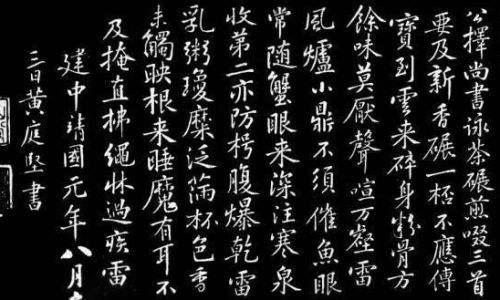 公擇尚書詠茶碾煎啜三首
要及新香碾一桮不應傳
寶到雲来碎身粉骨方
餘味莫厭聲喧万壑雷
風爐小鼎不須催魚眼
常随蟹眼来深注寒泉
收第二亦防枵腹爆乾雷
乳粥瓊糜泛滿杯色香
味觸映根来睡魔有耳不
及掩直拂繩牀過疾雷
建中靖國元年八月
三日黄庭堅書